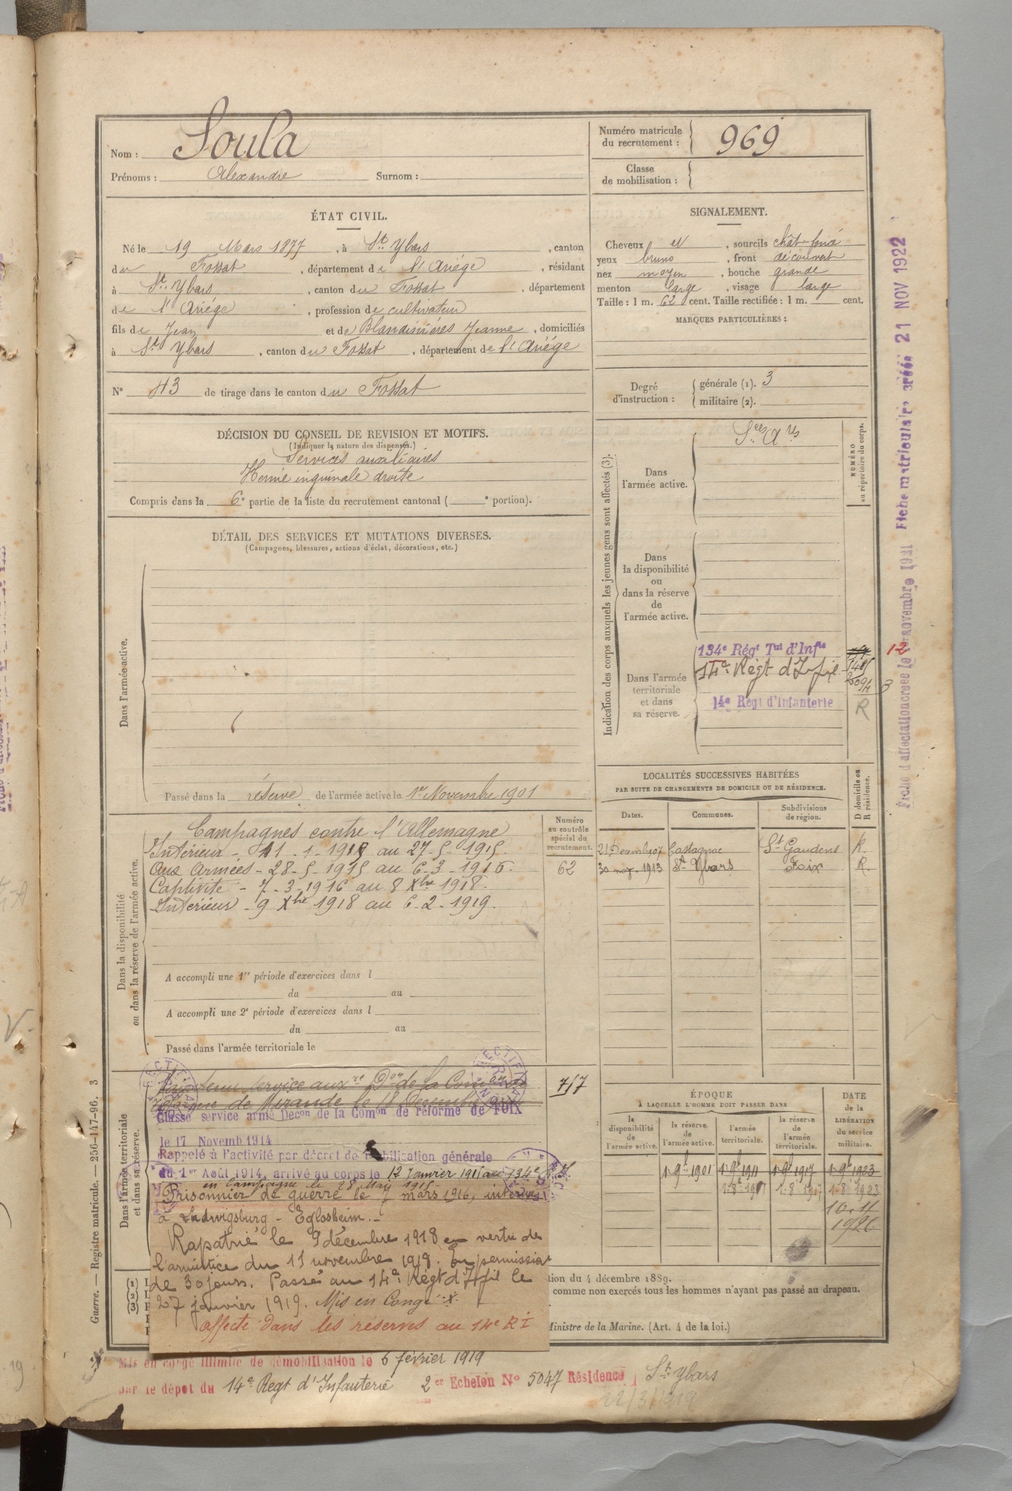 Nom : Soula
Prénoms : Alexandre Surnom :
Numéro matricule du recrutement : 969
Classe de mobilisation :
ÉTAT CIVIL.
Né le 19 Mars 1877, à St Ybars, canton
du Fossat, département de l'Ariége, résidant
à St Ybars, canton du Fossat, département
de l'Ariége, profession de cultivateur
fils de Jean et de Blandinières Jeanne, domiciliés
à St Ybars, canton du Fossat, département de l'Ariége
N° 43 de tirage dans le canton du Fossat
SIGNALEMENT.
Cheveux et, sourcils chât-foncé
yeux bruns, front découvert
nez moyen, bouche grande
menton large, visage large
Taille : 1 m. 62 cent. Taille rectifiée : 1 m. cent.
MARQUES PARTICULIÈRES :
Degré d'instruction : générale (1). 3
militaire (2).
DÉCISION DU CONSEIL DE REVISION ET MOTIFS.
(Indiquer la nature des dispenses.)
Services auxiliaires
Hernie inguinale droite
Compris dans la 6e partie de la liste du recrutement cantonal ( e portion).
DÉTAIL DES SERVICES ET MUTATIONS DIVERSES.
(Campagnes, blessures, actions d'éclat, décorations, etc.)
Dans l'armée active.
Passé dans la réserve de l'armée active le 1er Novembre 1901
Indication des corps auxquels les jeunes gens sont affectés (3).
NUMÉRO au répertoire du corps.
Dans l'armée active.
Sces Ares
Dans la disponibilité ou dans la réserve de l'armée active.
Dans l'armée territoriale et dans sa réserve.
134e Régt Tal d'Infie
14e Regt d'Infie
14e Regt d'Infanterie
R
12
3
Fiche matriculaire créée 21 NOV 1922
LOCALITÉS SUCCESSIVES HABITÉES
PAR SUITE DE CHANGEMENTS DE DOMICILE OU DE RÉSIDENCE.
Dates. Communes. Subdivisions de région. D domicile ou R résidence.
Castagnac St Gaudens R.
1913 St Ybars Foix R.
Dans la disponibilité ou dans la réserve de l'armée active.
Numéro au contrôle spécial du recrutement.
62
Campagnes contre l'Allemagne
Intérieur - 11-1-1915 au 27-5-1915
Aux Armées - 28-5-1915 au 6-3-1916
Captivité - 7-3-1916 au 8 Xbre 1918
Intérieur - 9 Xbre 1918 au 6-2-1919.
A accompli une 1re période d'exercices dans l
du au
A accompli une 2e période d'exercices dans l
du au
Passé dans l'armée territoriale le
Dans l'armée territoriale et dans sa réserve.
757
Classé service armé Décon de la Comon de réforme de FOIX
le 17 Novemb 1914
Rappelé à l'activité par décret de mobilisation générale
du 1er Août 1914, arrivé au corps le 12 Janvier 1915 au 134e
en Campagne le 28 May 1915
Prisonnier de guerre le 7 mars 1916, interné
à Ludwigsburg - Eglosheim.
Rapatrié le 9 décembre 1918 en vertu de
l'armistice du 11 novembre 1918. En permission
de 30 jours. Passé au 14e Régt d'Infie le
27 janvier 1919. Mis en Congé
affecté dans les réserves au 14e R I
ÉPOQUE
À LAQUELLE L'HOMME DOIT PASSER DANS
la disponibilité de l'armée active. la réserve de l'armée active. l'armée territoriale. la réserve de l'armée territoriale. DATE de la LIBÉRATION du service militaire.
1-9bre 1901 1-9bre 1911 1-9bre 1917 1-9bre 1923
1-8-1917 1-8-1923
1926
tion du 4 décembre 1889.
comme non exercés tous les hommes n'ayant pas passé au drapeau.
Ministre de la Marine. (Art. 4 de la loi.)
Guerre. — Registre matricule. — 256-147-96. 3
Mis en congé illimité de démobilisation le 6 février 1919
par le dépot du 14e Régt d'Infanterie 2er Echelon N° 5047 Résidence St Ybars
22/3/1919